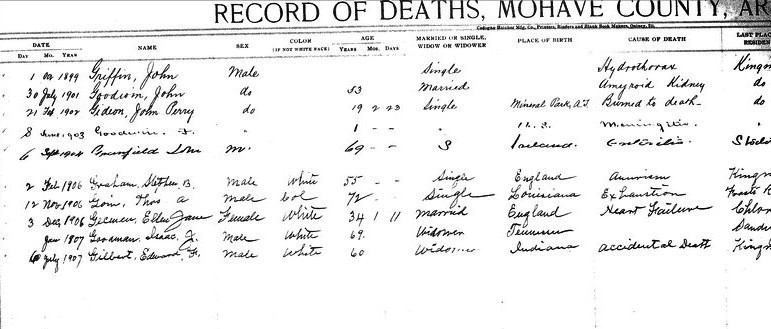 RECORD OF DEATHS, MOHAVE COUNTY, AR
DATE NAME SEX COLOR AGE MARRIED OR SINGLE, PLACE OF BIRTH CAUSE OF DEATH LAST PLAC
DAY MO. YEAR (IF NOT WHITE RACE) YEARS MOS. DAYS WIDOW OR WIDOWER RESIDEN
1 Oct 1899 Griffin, John Male Single Hydrothorax Kingm
30 July 1901 Goodson, John do 53 Married Amyroid Kidney do
21 Feb 1902 Gideon, John Perry do 19 2 23 Single Mineral Park, A.T. Burned to death do
8 June 1903 Goodwin, " 1 - - " U.S. Meningitis "
6 Sept 1904 M. 69 - - S Ireland
2 Feb 1906 Graham, Stephen B. Male White 55 - - Single England Kingm
12 Nov 1906 Thos a Male Col 72 - Single Louisiana Exhaustion
3 Dec 1906 Ellen Jane Female White 34 1 11 Married England Heart Failure Chlor
Jan 1807 Goodman, Isaac J. Male White 69. Widower Sand
6 July 1907 Gilbert, Edward F. Male White 60 Widower Indiana accidental Death King